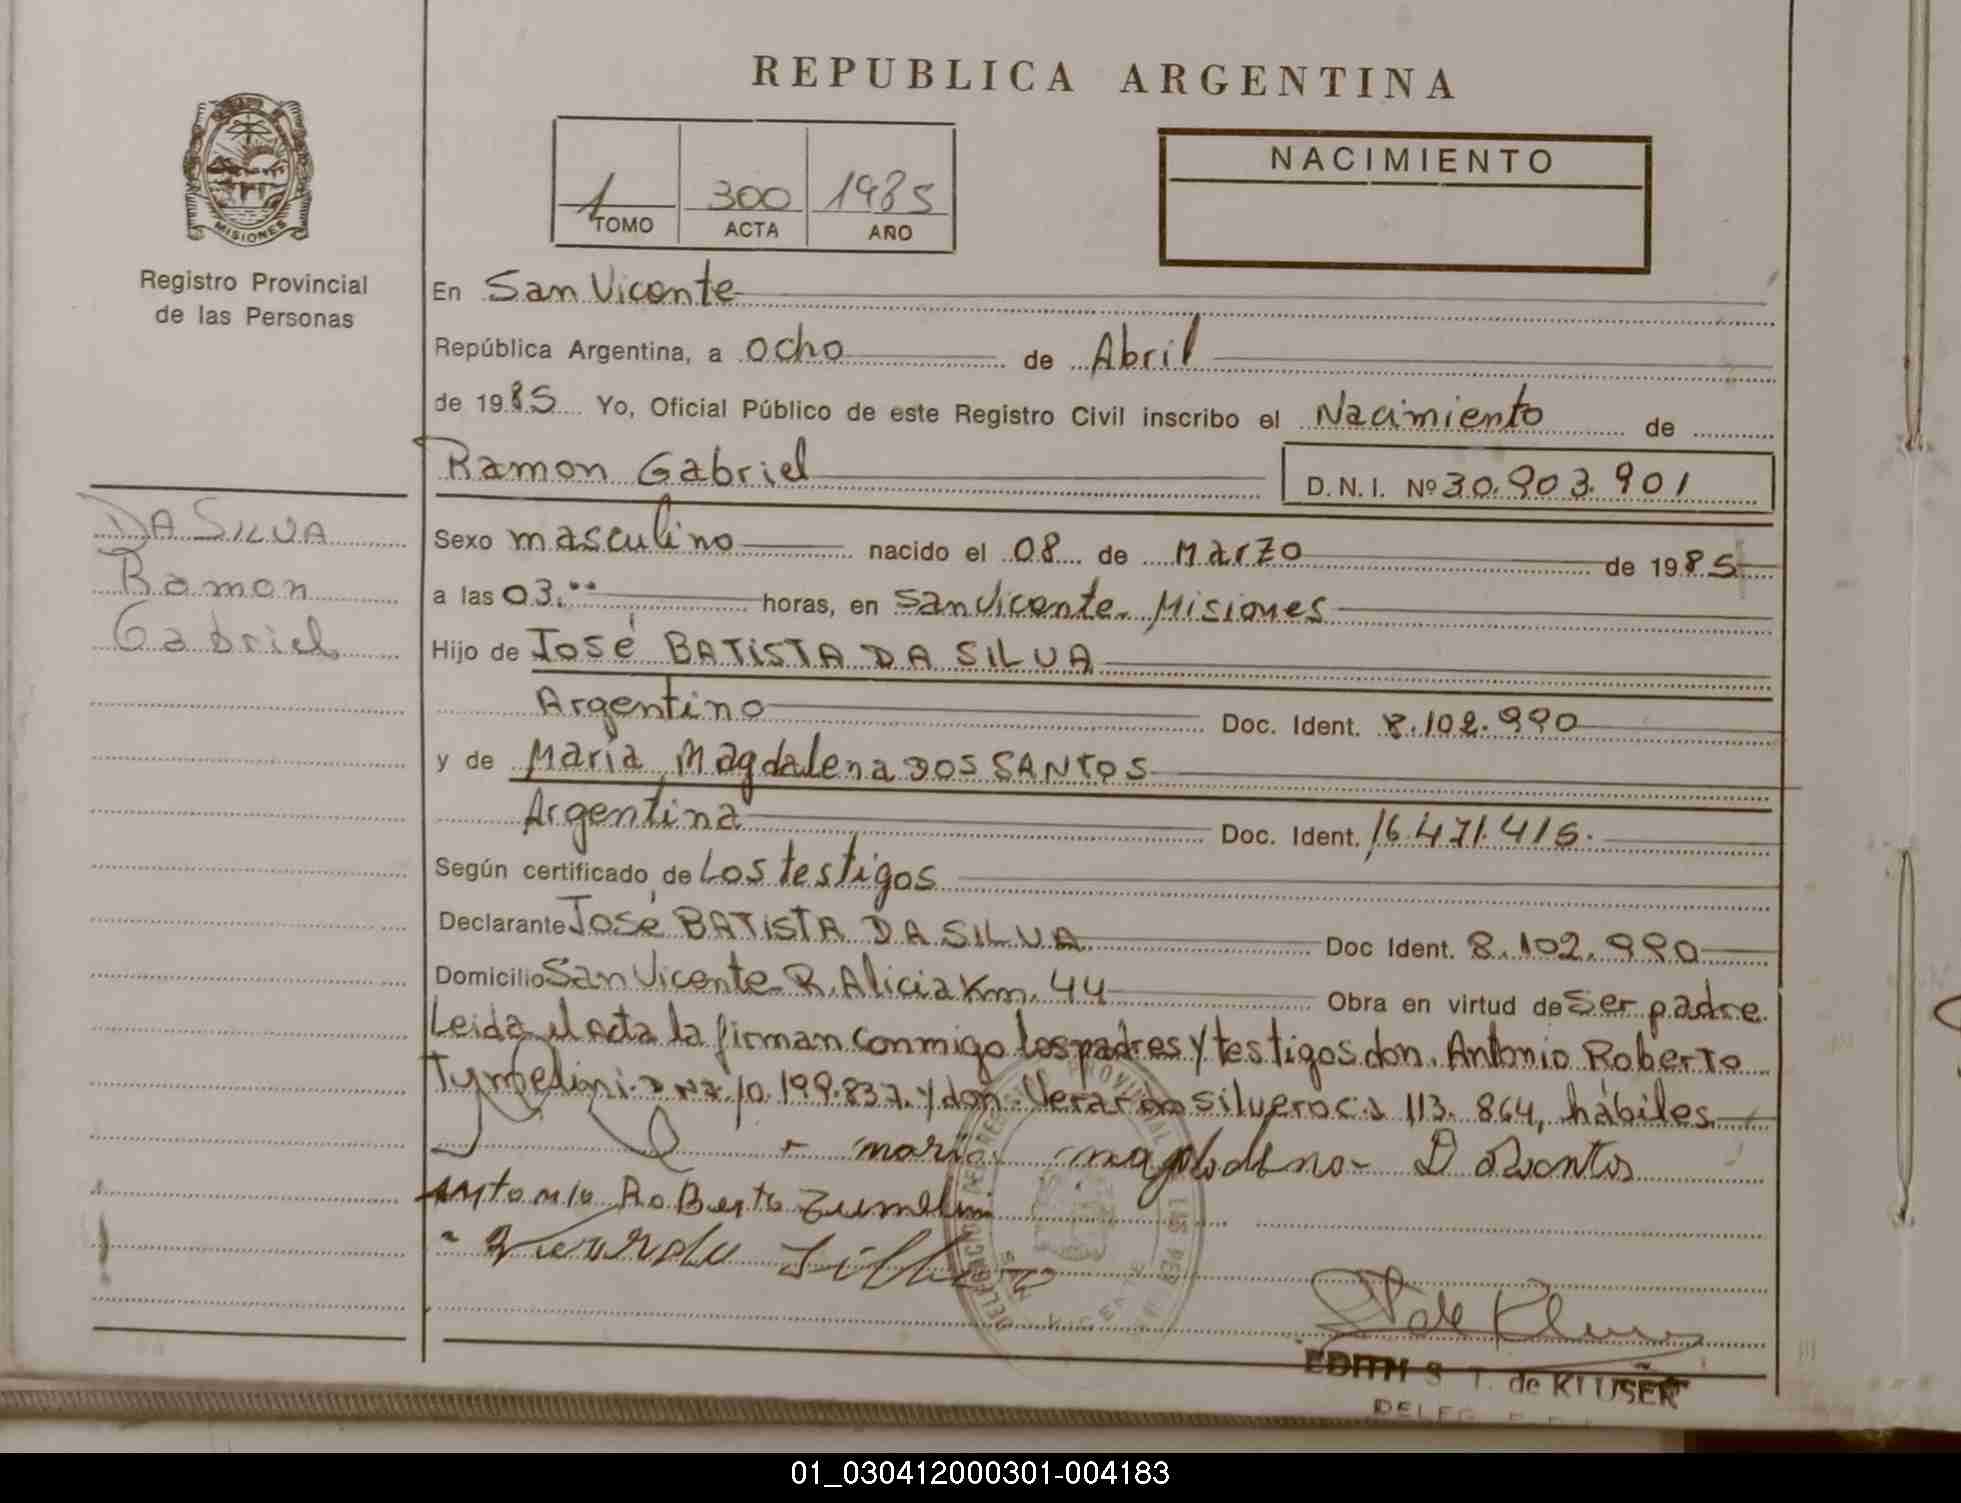 REPUBLICA ARGENTINA
MISIONES
Registro Provincial
de las Personas
1 300 1985
TOMO ACTA AÑO
NACIMIENTO
En San Vicente
República Argentina, a ocho de Abril
de 1985 Yo, Oficial Público de este Registro Civil inscribo el Nacimiento de
Ramon Gabriel D.N.I. Nº 30.903.901
DA SILVA
Ramon
Gabriel
Sexo masculino nacido el 08 de Marzo de 1985
a las 03.°° horas, en San Vicente. Misiones
Hijo de José BATISTA DA SILVA
Argentino Doc. Ident. 8.102.990
y de María Magdalena DOS SANTOS
Argentina Doc. Ident. 16.471.415.
Según certificado de Los testigos
Declarante José BATISTA DA SILVA Doc Ident. 8.102.990
Domicilio San Vicente R. Alicia Km. 44 Obra en virtud de Ser padre.
Leida el acta la firman conmigo los padres y testigos don. Antonio Roberto
10.199.837. y don 113.864, hábiles
maria magdalena D
Antonio Roberto
EDITH S T. de KLUSER
DELEG
01_030412000301-004183